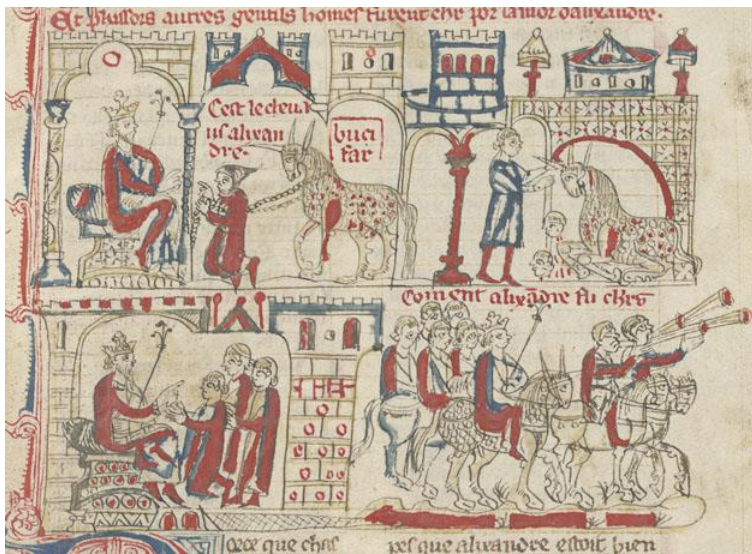 Et plusſors autres gentils homes furent chr̃ por lamor dalixandre.
Cest le cheua
us alixan
dre.
buci
fax
Coment alix̃adre fu chr̃s
pes que alixandre estoit bien